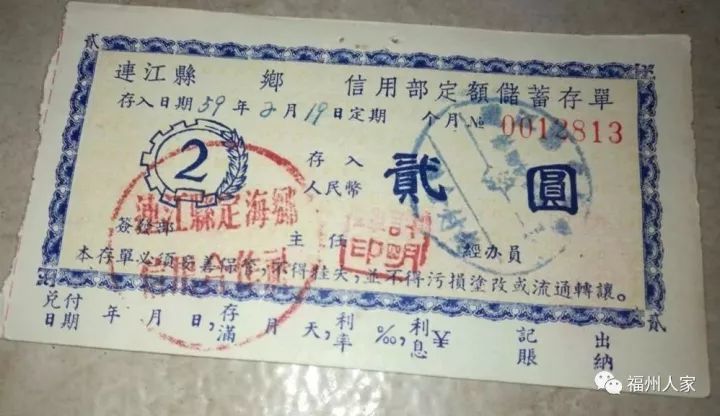 貳
連江縣 鄉 信用部定額儲蓄存單
存入日期59年2月19日定期 个月№ 0012813
2
存入
人民幣 貳圓
連江縣定海鄉
信用合作社
簽發部 主任 經办員
印明
本存單必須妥善保管,不得挂失,並不得污損塗改或流通轉讓。
兑付日期 年 月 日,存滿 月 天,利率 ‰,利息¥ 記賬 出納
貳
福州人家